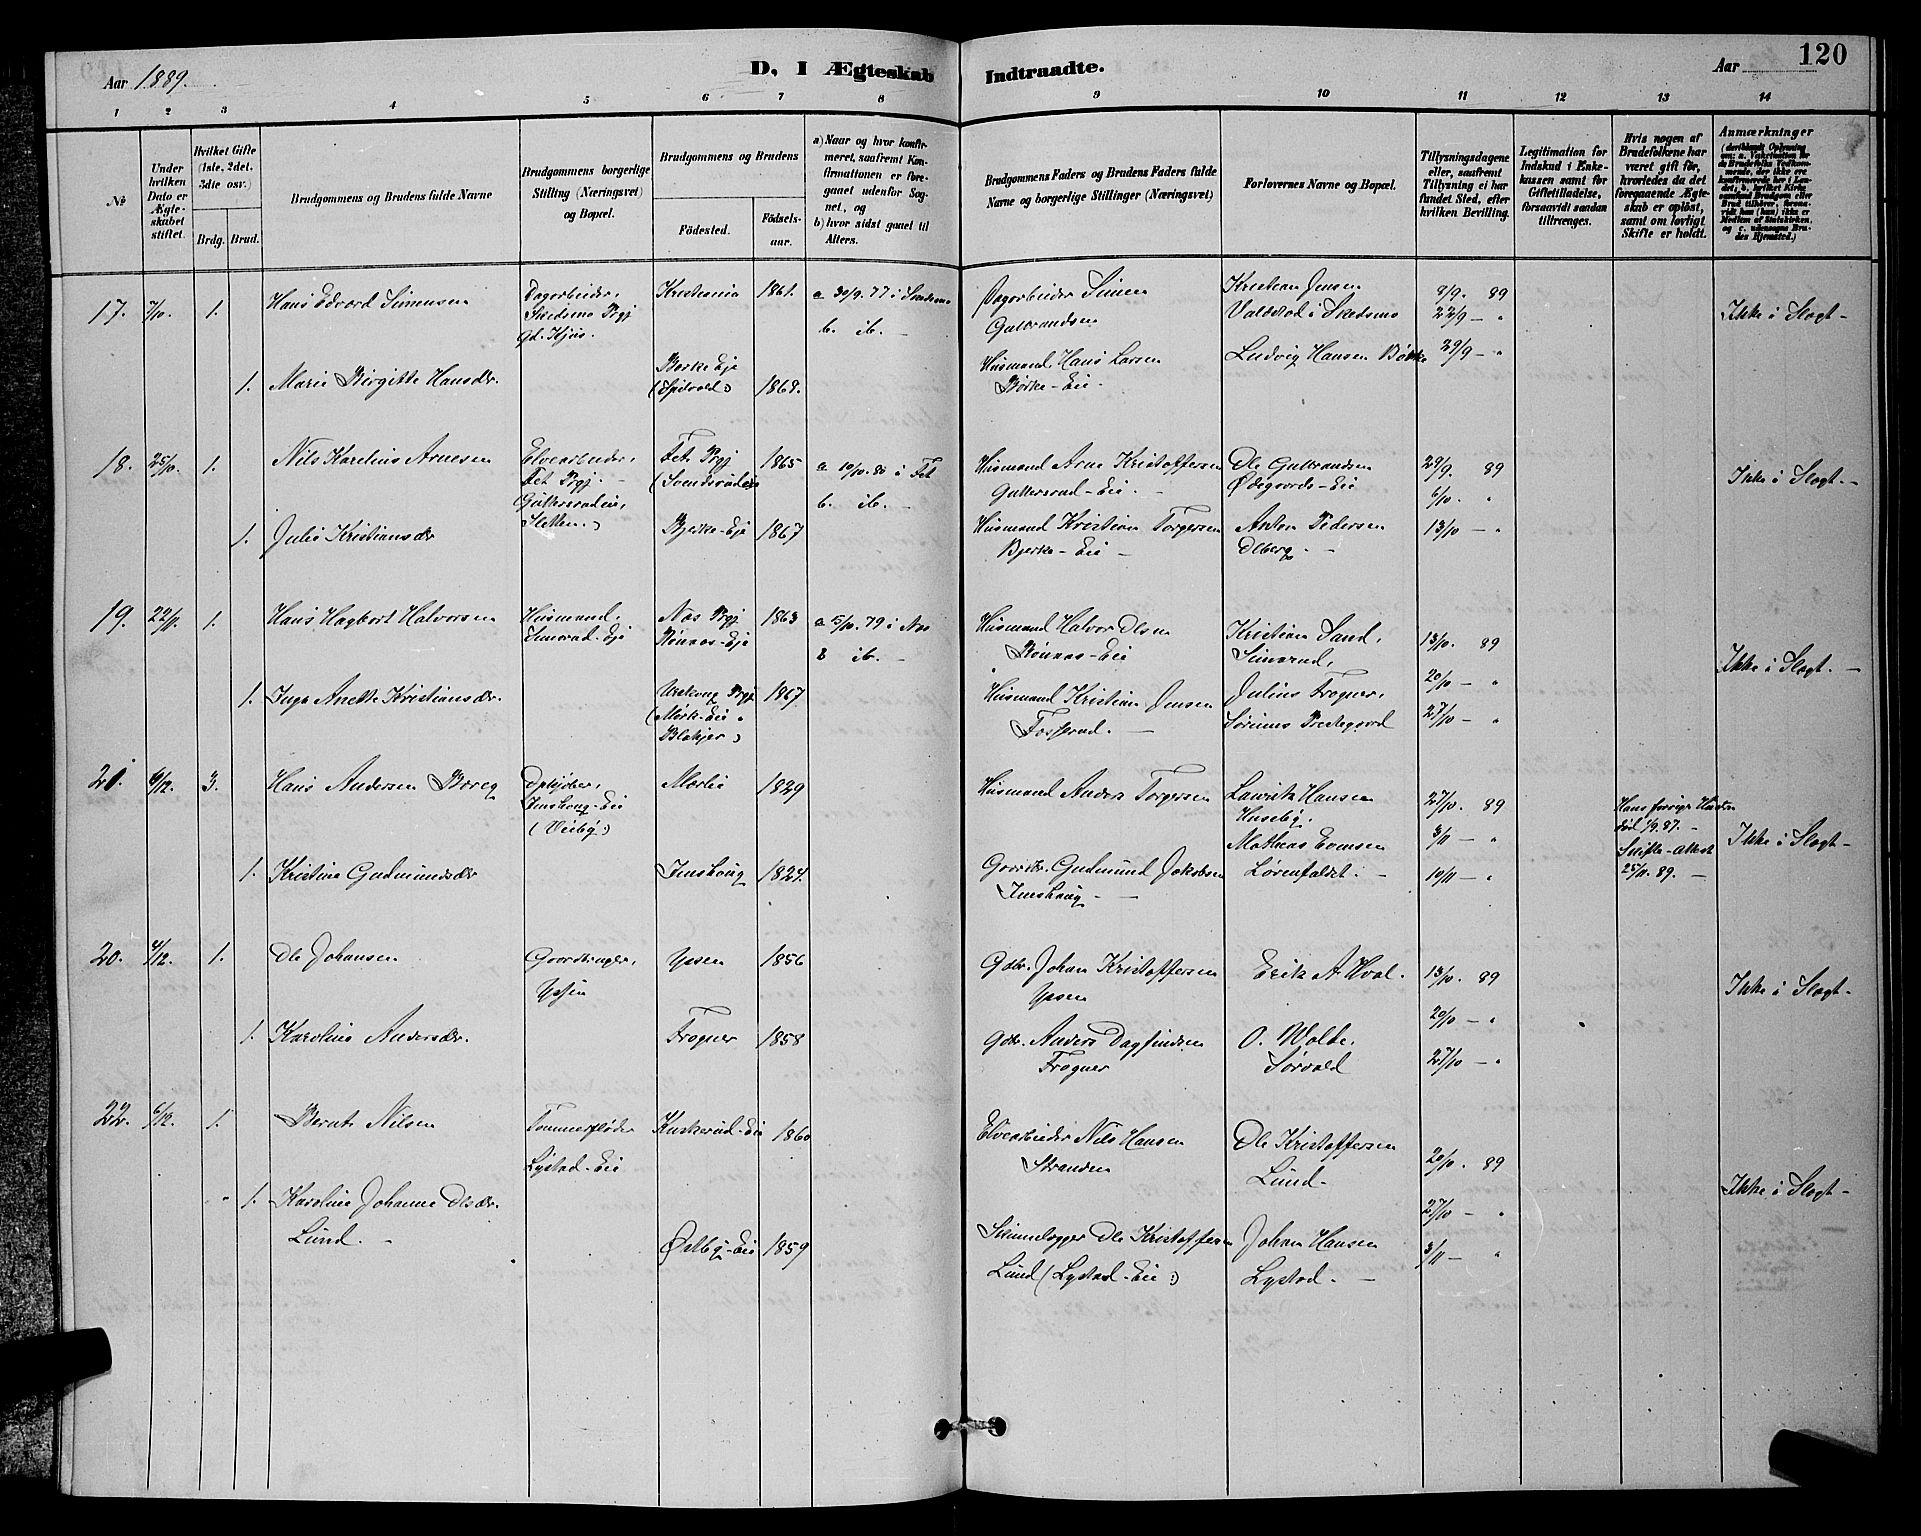 120
Aar 1889.
D, I Ægteskab Indtraadte.
Aar
1 2 3 4 5 6 7 8 9 10 11 12 13 14
No
Under hvilken Dato er Ægteskabet stiftet.
Hvilket Gifte (1ste, 2det, 3die osv.)
Brdg. Brud.
Brudgommens og Brudens fulde Navne
Brudgommens borgerlige Stilling (Næringsvei) og Bopæl.
Brudgommens og Brudens
Fødested.
Fødselsaar.
a) Naar og hvor konfirmeret, saafremt Konfirmationen er foregaaet udenfor Sognet, og
b) hvor sidst gaaet til Alters.
Brudgommens Faders og Brudens Faders fulde Navne og borgerlige Stillinger (Næringsvei)
Forlovernes Navne og Bopæl.
Tillysningsdagene eller, saafremt Tillysning ei har fundet Sted, efter hvilken Bevilling.
Legitimation for Indskud i Enkekassen samt for Giftetilladelse, forsaavidt saadan tiltrænges.
Hvis nogen af Brudefolkene har været gift før, hvorledes da det foregaaende Ægteskab er opløst, samt om lovligt Skifte er holdt.
Anmærkninger
17. 7/10. 1. Hans Edvard Simensen
Dagarbeider, Skedsmo Prgj
Kristiania 1861.
a 30/9. 77 i Skedsmo
b. ib. —
Dagarbeider Simen Gulbrandsen
Kristian Jensen
Valstad i Skedsmo
8/9. 89
22/9 — "
29/9 — "
Ikke i Slægt —
1. Marie Birgitte Hansdr.
Børke Eje
1869.
Husmand Hans Larsen
Børke-Eie. —
Ludvig Hansen Børke
18. 25/10. 1. Nils Karelius Arnesen
Elvearbeider,
Fet Prgj. —
Fet Prgj 1865
a 10/10. 80 i Fet
b. ib. —
Husmand Arne Kristoffersen
Gukkersrud-Eie. —
Ole Gulbrandsen
Ødegaards-Eie
29/9. 89
6/10. "
13/10 — "
Ikke i Slægt. —
1. Julie Kristiansdr
Bjerke-Eje 1867
Husmand Kristian Torgersen
Bjerke-Eie —
Anton Pedersen
Olberg. —
19. 22/11. 1. Hans Hagbart Halvorsen
Husmand,
Imsrud-Eje
Næs Prgj
Rønnæs-Eje 1863
a 5/10. 79 i Næs
b ib. —
Husmand Halvor Olsen
Rønnæs-Eie
Kristian Sand,
13/10. 89
20/10 — "
27/10 — "
Ikke i Slægt. —
1. Inga Anette Kristiansdr.
Urskoug Prgj
(Mørk-Eie
Blakjer) 1867
Husmand Kristian Jensen
Fossrud. —
Julius Frogner,
Sørums Prestegaard
21. 6/12. 3. Hans Andersen Borg
Opsidder,
Imshoug-Eie
Mærlie 1829
Husmand Anders Torgersen
Lauritz Hansen
Huseby.
27/10. 89
3/11 — "
10/11 — "
Hans forrige Hustru
død 1/9. 87. —
Skifte-Attest
25/11. 89. —
Ikke i Slægt —
1. Kristine Gudmundsdr
Imshoug 1824.
Gaardbr. Gudmund Jakobsen
Imshoug —
Mathias Evensen
Lørenfaldet. —
20. 4/12. 1. Ole Johansen
Gaardbruger,
Ypsen
Ypsen 1856
Gdbr. Johan Kristoffersen
Ypsen
Erik A. Hval.
13/10. 89
20/10 — "
27/10 — "
Ikke i Slægt —
1. Karoline Andersdr.
Frogner 1858
Gdbr. Anders Dagfindsen
Frogner
O. Wolbe.
Sørvald
22. 6/12. 1. Bernt Nilsen
Tømmerfløder
Lystad-Eie
Kuskerud-Eie 1860
Elvearbeider Nils Hansen
Stranden
Ole Kristoffersen
Lund.
20/10. 89
27/10 — "
3/11 — "
Ikke i Slægt —
1. Karoline Johanne Olsdr.
Lund. —
Østby-Eie 1859
Ole Kristoffersen
Lund (Lystad-Eie)
Johan Hansen
Lystad. —